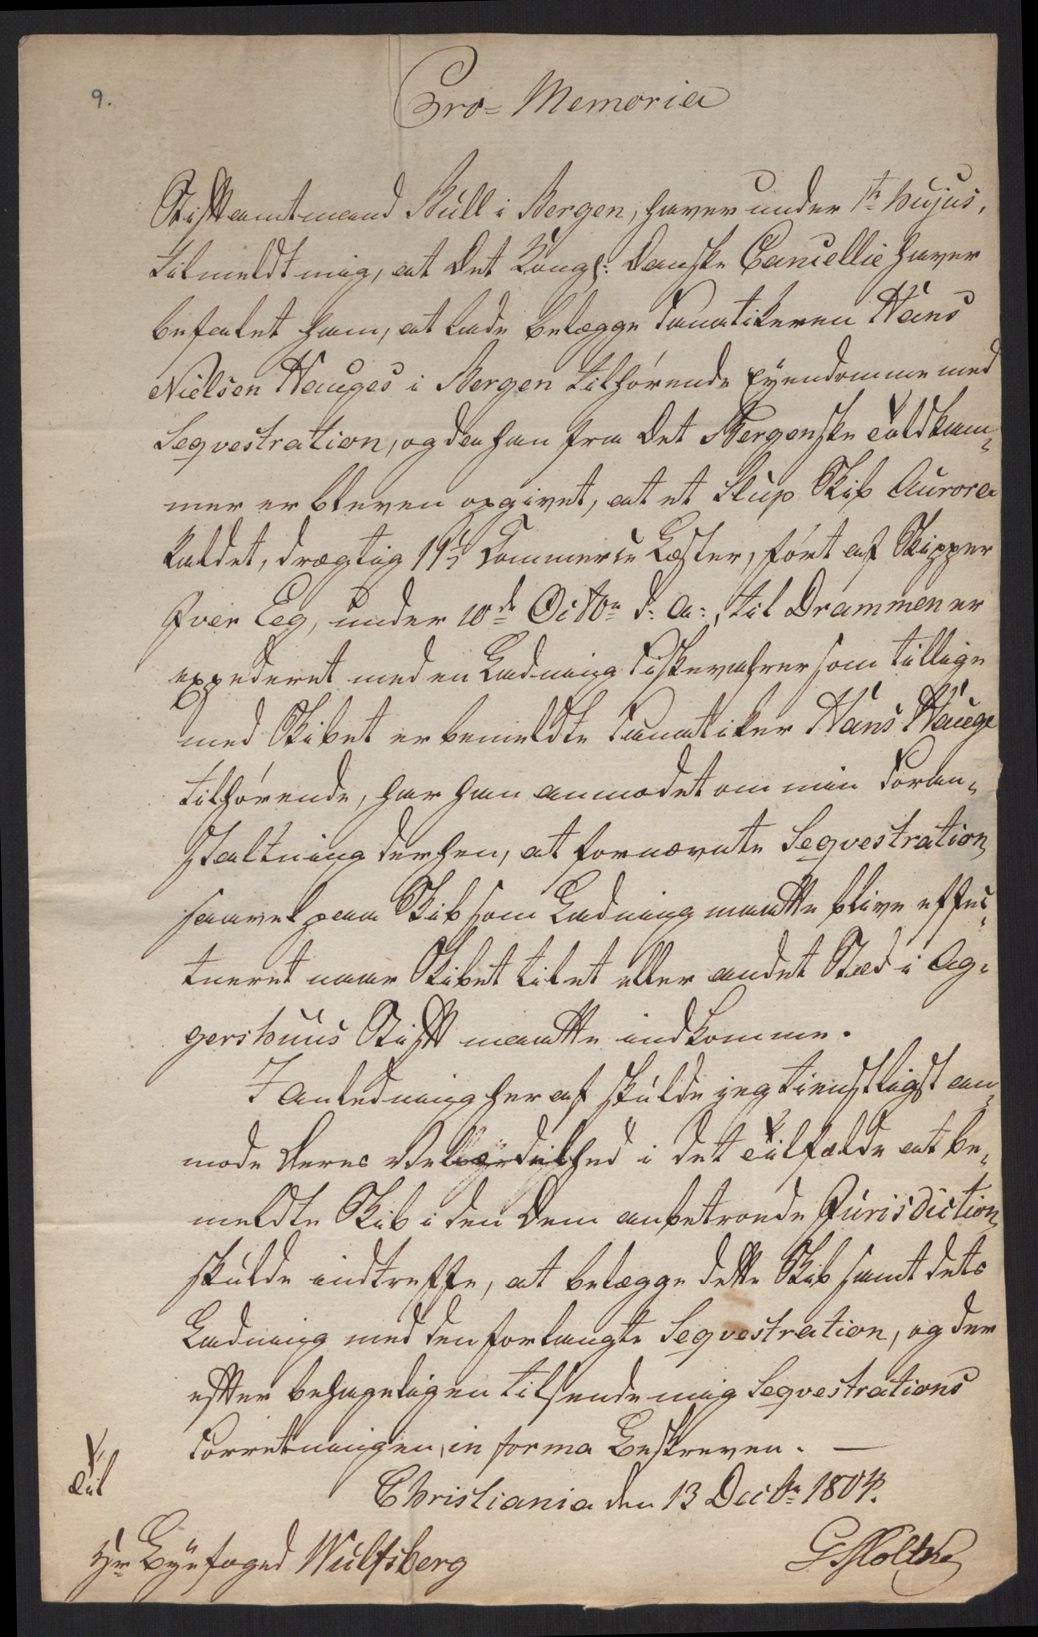 9.
Pro- Memoria
Stiftamtmand Bull i Bergen, haver under 1te hujus,
tilmeldt mig, at det Kongl: Danske Cancellie haver
befalet ham, at lade belægge Fanatikeren Hans
Nielsen Hauges i Bergen tilhørende Eyendomme med
Seqvestration, og da han fra det Bergenske Toldkam-
mer er bleven opgivet, at et Slup Skib Aurora
kaldet, drægtig 19½ Commerce Læster, ført af Skipper
Iver Eeg, under 10de Octbr d: A:, til Drammen er
expederet med en Ladning Fiskevahrer som tillige
med Skibet er bemeldte Fanatiker Hans Hauge
tilhørende, har han anmodet om min Foran-
staltning derhen, at fornævnte Seqvestration
saavel paa Skib som Ladning maatte blive effec-
tueret naar Skibet til et eller andet Sted i Ag-
gershuus Stift maatte indkomme.
I Anledning her af skulde jeg tienstligst an-
mode Deres Velbyrdighed i det Tilfælde at be-
meldte Skib i den Dem anbetroede Jurisdiction
skulde indtreffe, at belægge dette Skib samt dets
Ladning med den forlangte Seqvestration, og der
efter behageligen tilsende mig Seqvestrations
Forretningen, in forma Beskreven. —
Christiania den 13 Decbr 1804.
Til
Hr Byefoged Wulfsberg
G Moltke